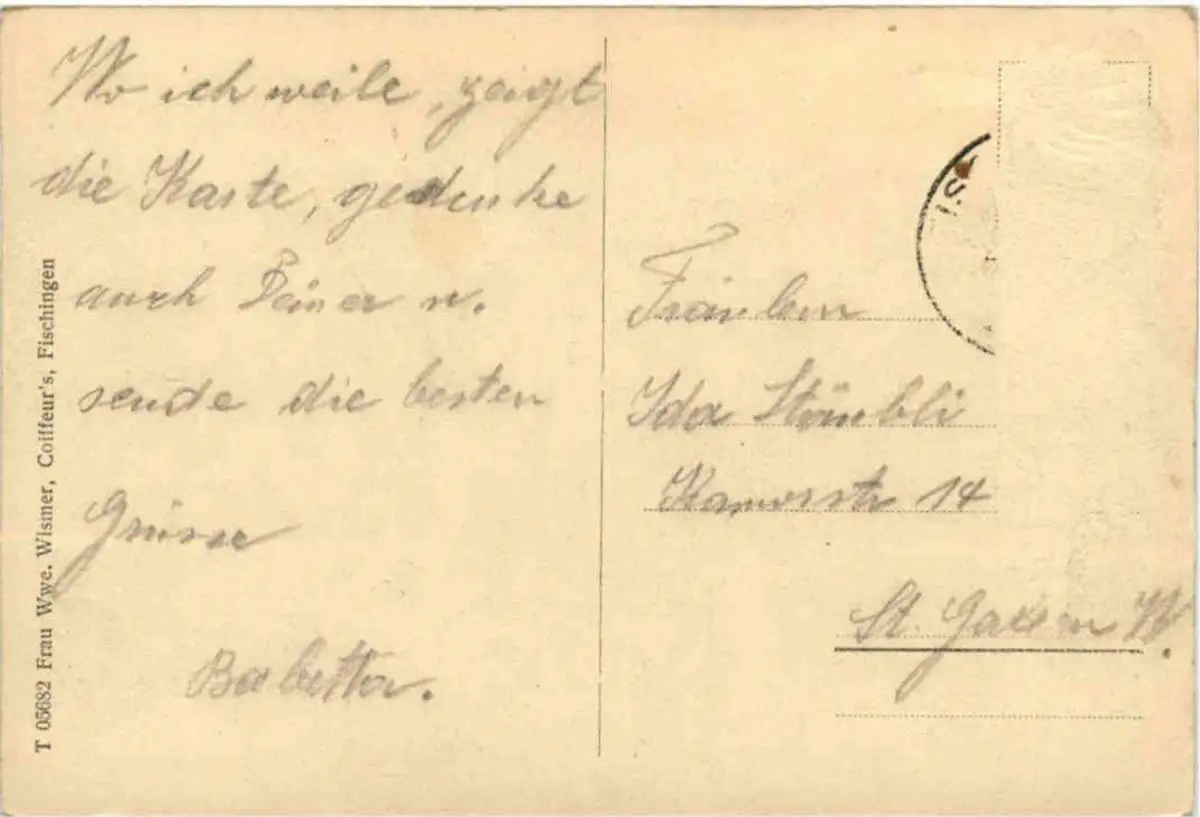 Wo ich weile, zeigt
die Karte, gedenke
auch Deiner u.
sende die besten
Grüsse
Babetta.
T 05682 Frau Wwe. Wismer, Coiffeur's, Fischingen
Fräulein
Ida Stäubli
Kamorstr 14
St. Gallen W.